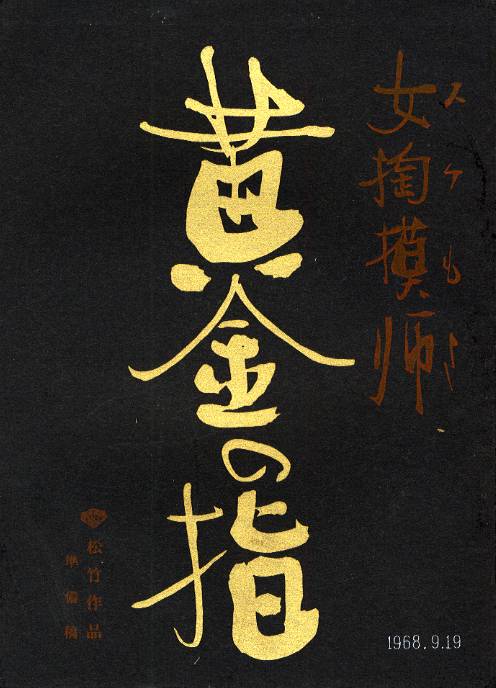 女掏摸師
スケもさ
黄金の指
松竹作品
準備稿
1968.9.19